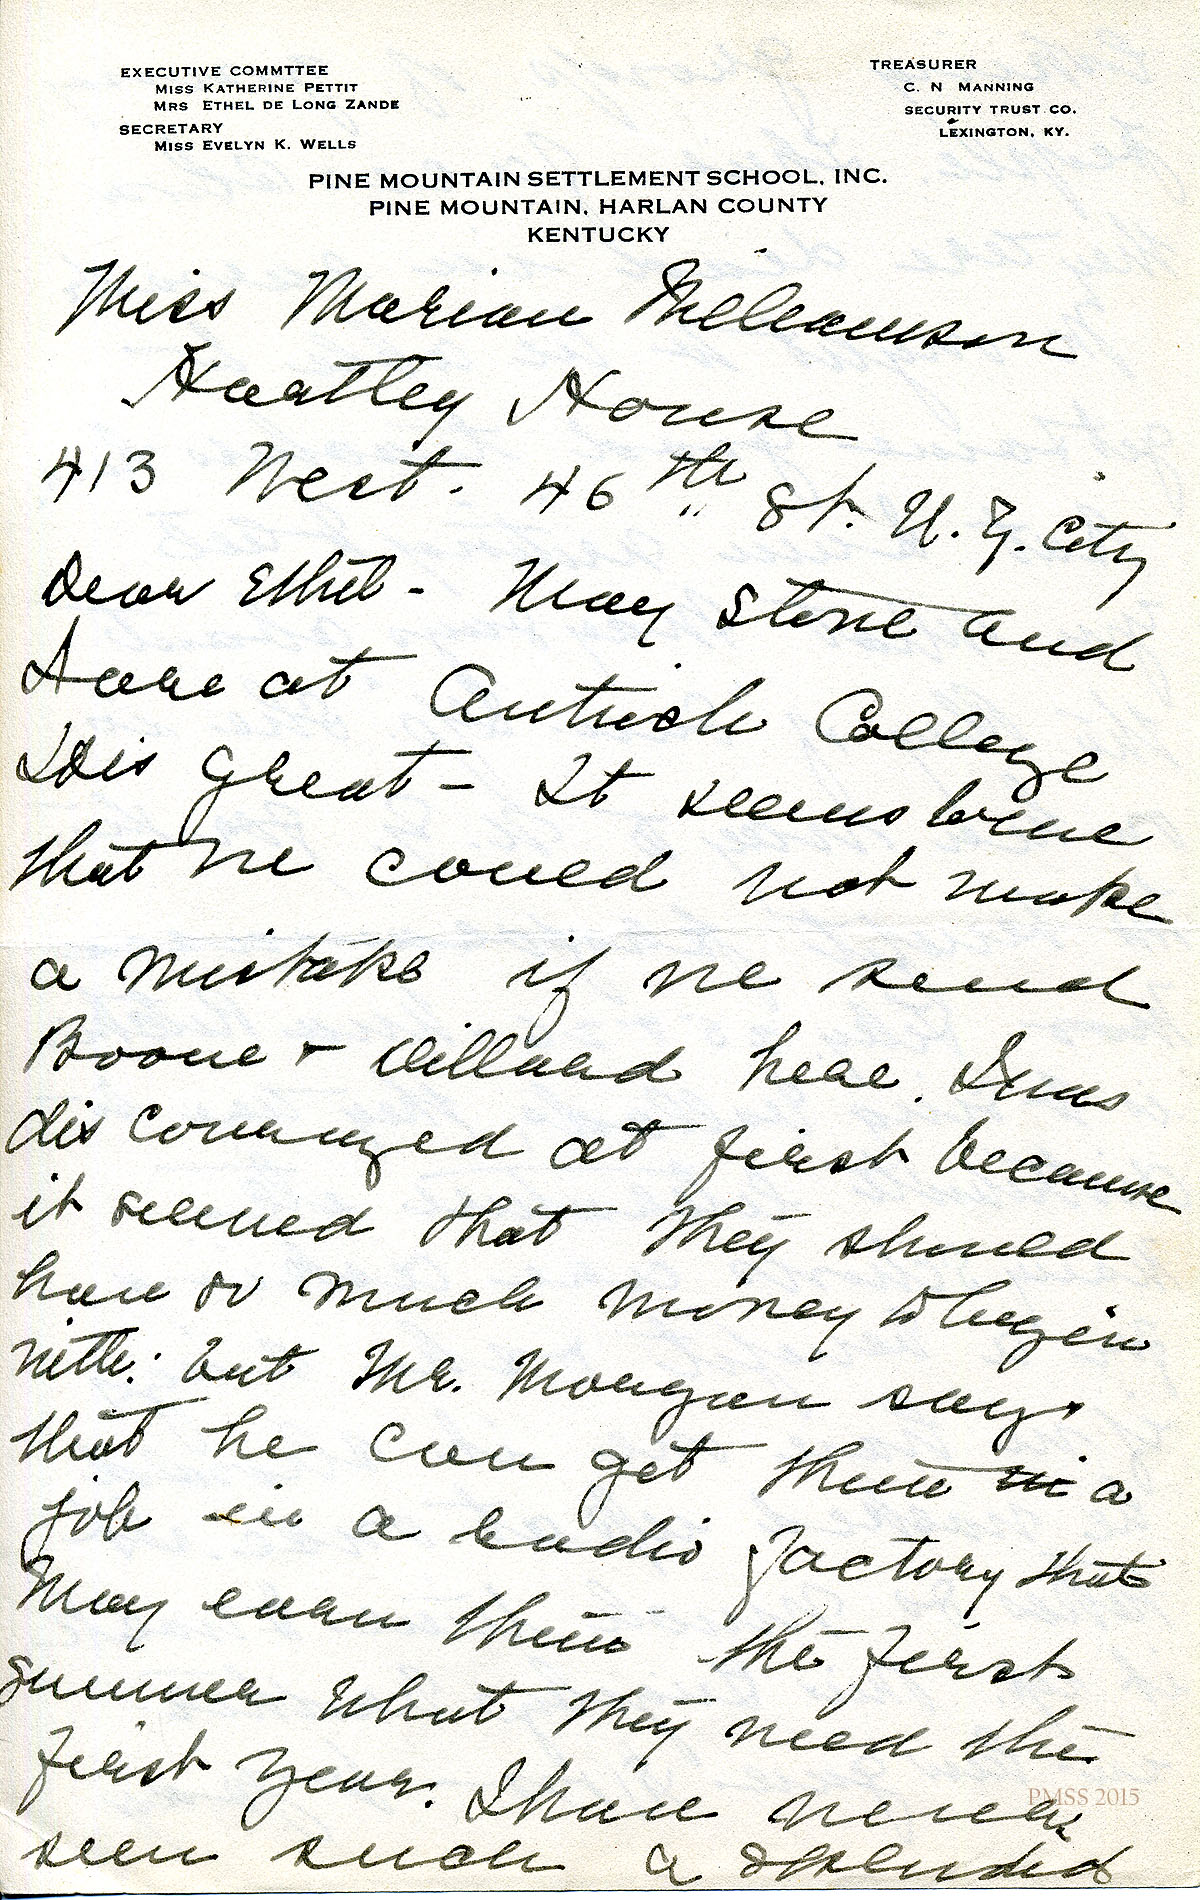 EXECUTIVE COMMTTEE
MISS KATHERINE PETTIT
MRS ETHEL DE LONG ZANDE
SECRETARY
MISS EVELYN K. WELLS
TREASURER
C. N MANNING
SECURITY TRUST CO.
LEXINGTON, KY.
PINE MOUNTAIN SETTLEMENT SCHOOL, INC.
PINE MOUNTAIN, HARLAN COUNTY
KENTUCKY
Miss Marian Williamson
Hartley House
413 West. 46th St. N. Y. City
Dear Ethel - May Stone and
I are at Antioch College
It is great - It seems to me
that we could not make
a mistake if we send
Boone + Dillard here. I was
discouraged at first because
it seemed that they should
have so much money to begin
with: but Mr. Morgan says
that he can get them in a
job in a radio factory that
may earn them the first
summer what they need the
first year. I have never
seen such a splendid
PMSS 2015